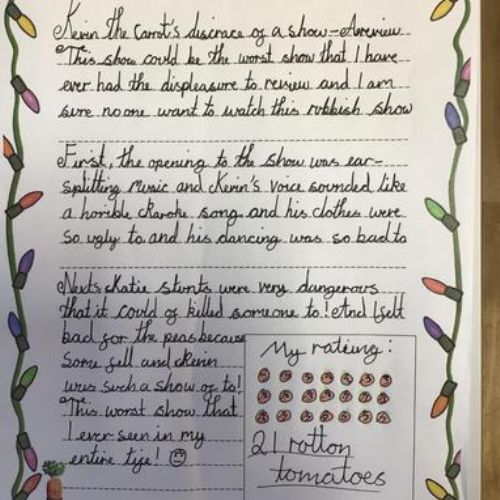 Kevin the Carrot's discrace of a show - A review
This show could be the worst show that I have
ever had the displeasure to review and I am
sure no one want to watch this rubbish show
First, the opening to the show was ear-
splitting music and Kevin's voice sounded like
a horible Karoke song and his clothes were
so ugly to and his dancing was so bad to
Next Katie stunts were very dangerous
that it could of killed someone to! And I felt
bad for the peas because
some fell and Kevin
was such a show of to!
This worst show that
I ever seen in my
entire life!
My rateing:
21 rotton
tomatoes